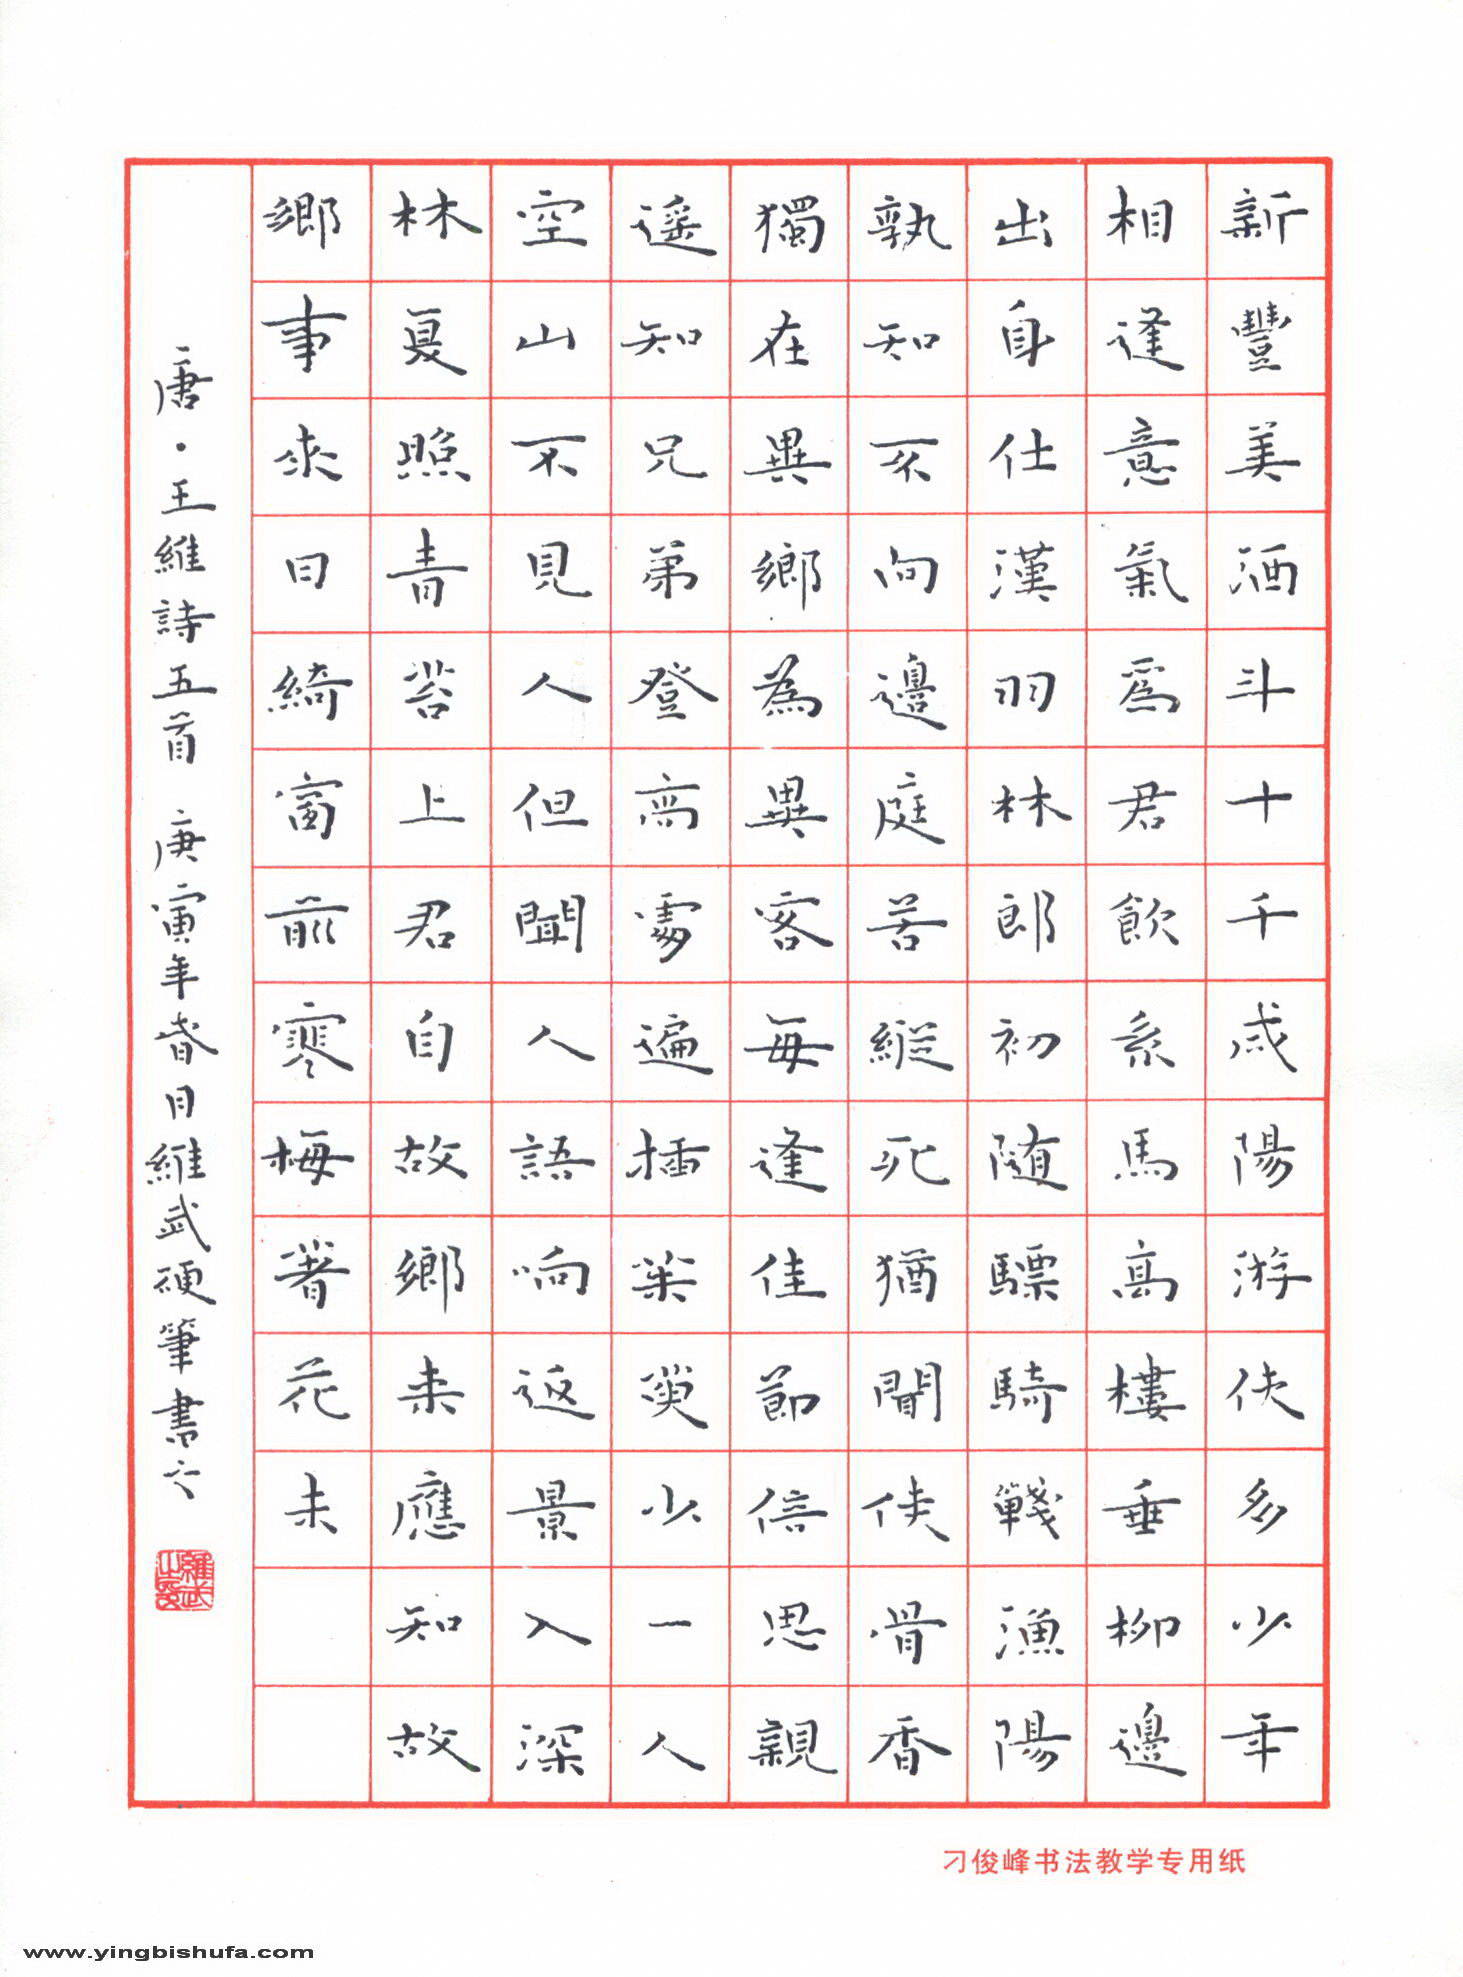 新豐美酒斗十千咸陽游俠多少年
相逢意氣爲君飲系馬高樓垂柳邊
出身仕漢羽林郎初随驃騎戰漁陽
孰知不向邊庭苦縱死猶聞俠骨香
獨在異鄉為異客每逢佳節倍思親
遥知兄弟登高處遍插茱萸少一人
空山不見人但聞人語响返景入深
林复照青苔上君自故鄉来應知故
鄉事来日綺窗前寒梅著花未
唐·王維詩五首 庚寅年春日維武硬筆書之
刁俊峰书法教学专用纸
www.yingbishufa.com